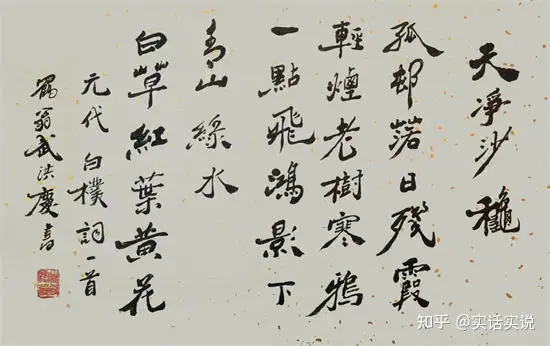 天淨沙穐
孤邨落日殘霞
輕煙老樹寒鴉
一點飛鴻影下
青山綠水
白草紅葉黃花
元代白樸詞一首
翁武洪慶書
知乎 @实话实说